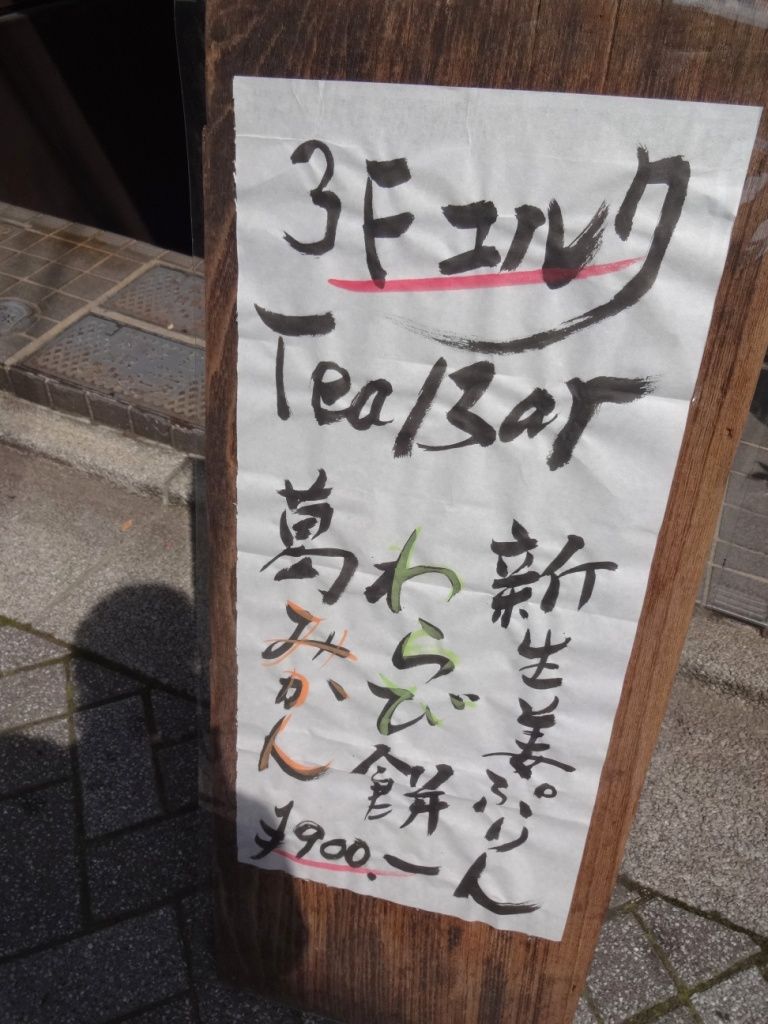 3F エルク
Tea Bar
新生姜ぷりん
わらび餅
葛みかん
¥900.ー